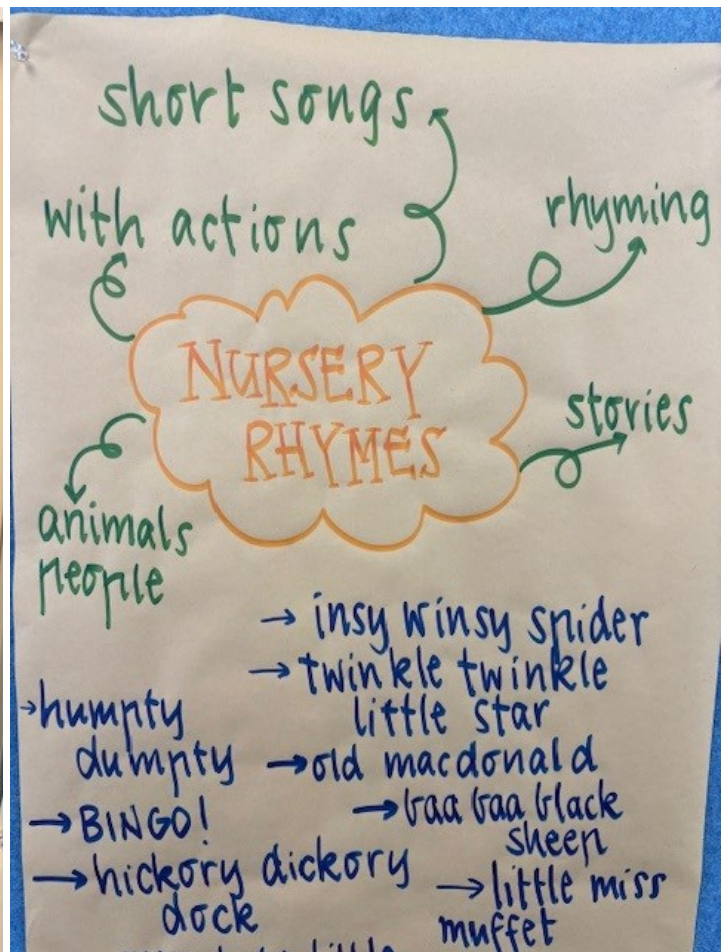 short songs
with actions
rhyming
NURSERY
RHYMES
stories
animals
people
→ insy winsy spider
→ twinkle twinkle
little star
→ humpty
dumpty
→ old macdonald
→ BINGO!
→ baa baa black
sheep
→ hickory dickory
dock
→ little miss
muffet
little